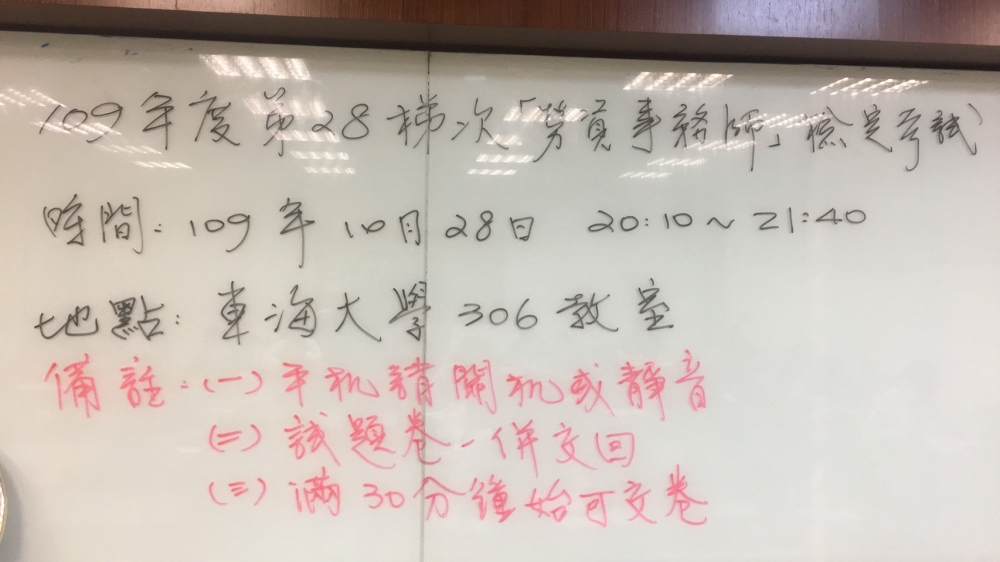 109年度第28梯次「勞資事務師」檢定考試
時間:109年10月28日 20:10~21:40
地點:東海大學306教室
備註:(一)手机請關机或靜音
(二)試題卷一併交回
(三)滿30分鐘始可交卷